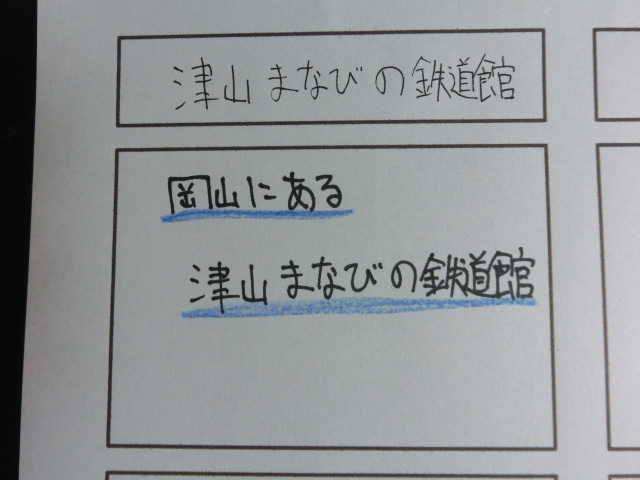 津山まなびの鉄道館
岡山にある
津山まなびの鉄道館